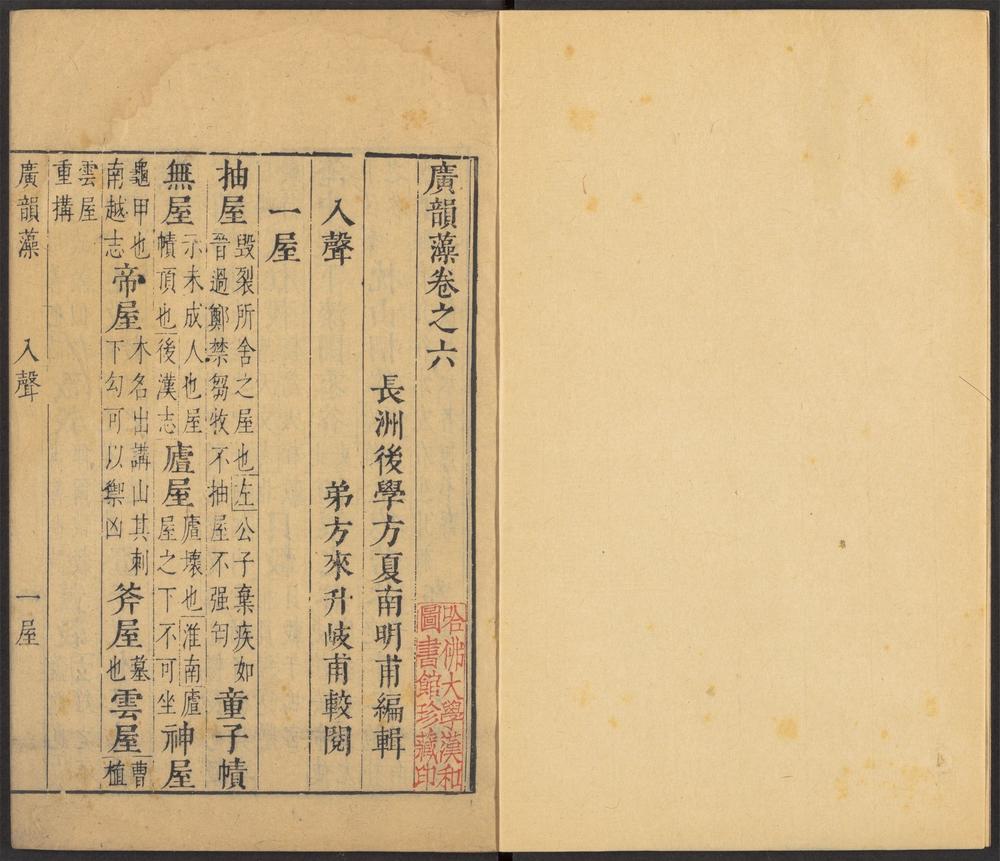 廣韻藻卷之六
長洲後學方夏南明甫編輯
入聲　弟方來升岐甫較閱
一屋
抽屋毀裂所舍之屋也左公子棄疾如晉過鄭禁芻牧不抽屋不强匄童子幘
無屋示未成人也屋幘頂也後漢志廬屋廬壞也淮南廬屋之下不可坐神屋
龜甲也南越志帝屋木名出講山其刺下勾可以禦凶斧屋墓也雲屋曹植
雲屋重搆
廣韻藻　入聲　一屋
哈佛大學漢和圖書館珍藏印